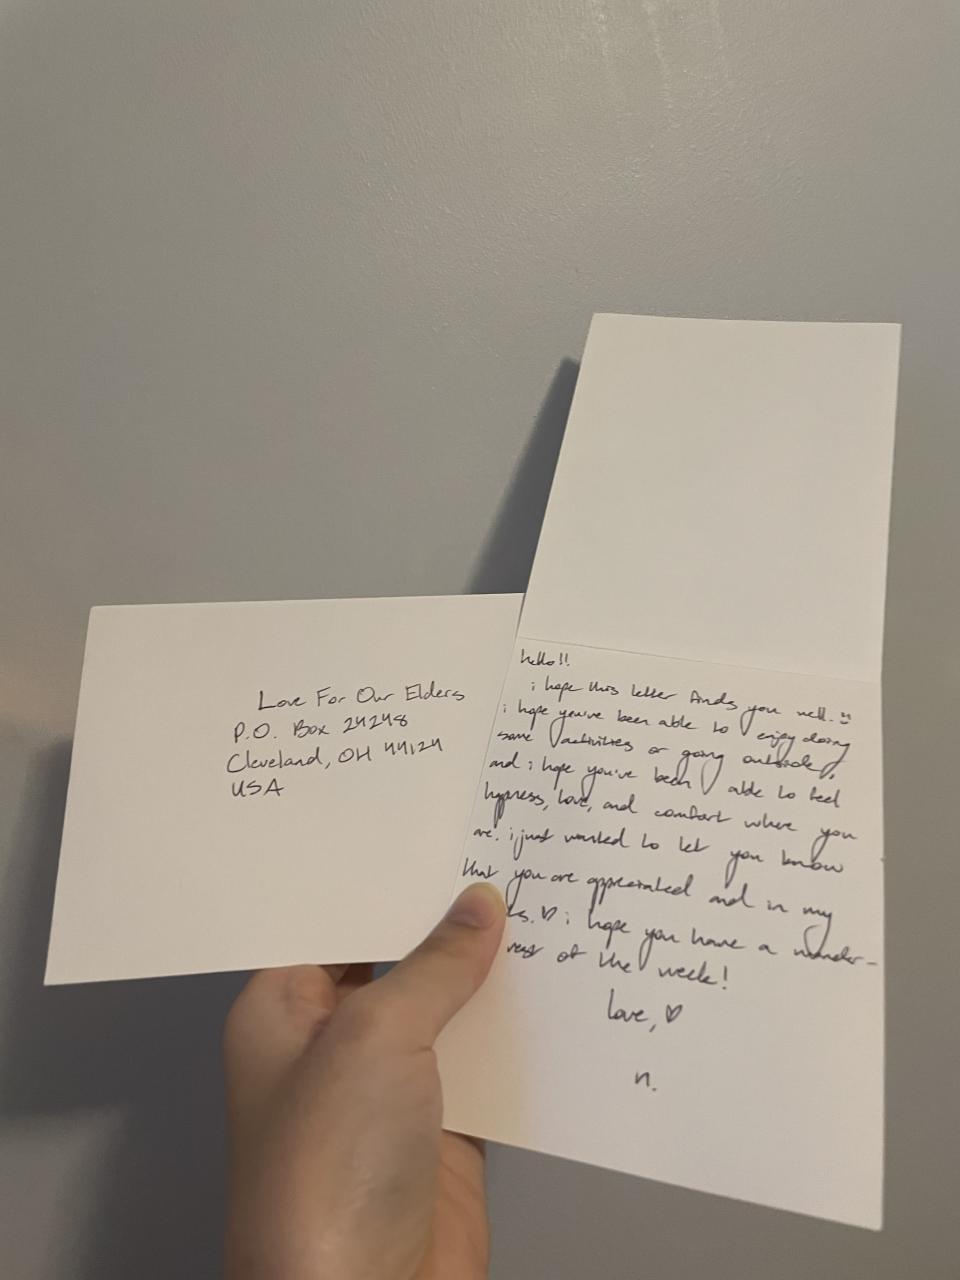 Love For Our Elders
P.O. Box 24248
Cleveland, OH 44124
USA
hello!!
i hope this letter finds you well. :)
i hope you've been able to enjoy doing
some activities or going outside,
and i hope you've been able to feel
hppness, love, and comfort where you
are. i just wanted to let you know
that you are appreciated and in my
♡ i hope you have a wonder-
rest of the week!
love, ♡
n.